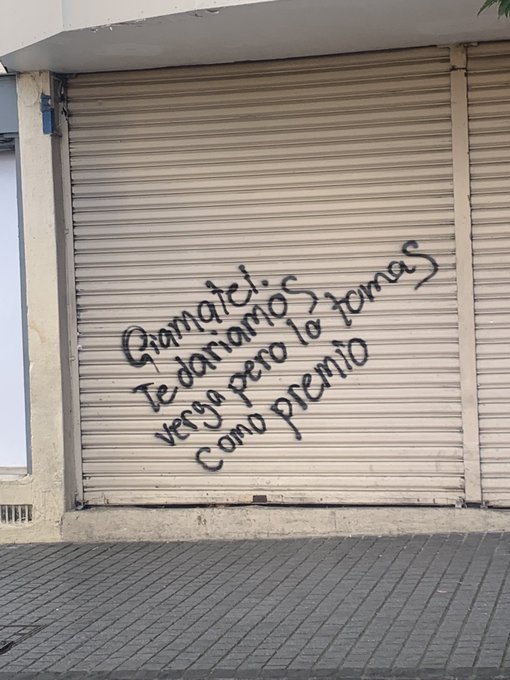 Giamatei.
Te dariamos
verga pero la tomas
como premio